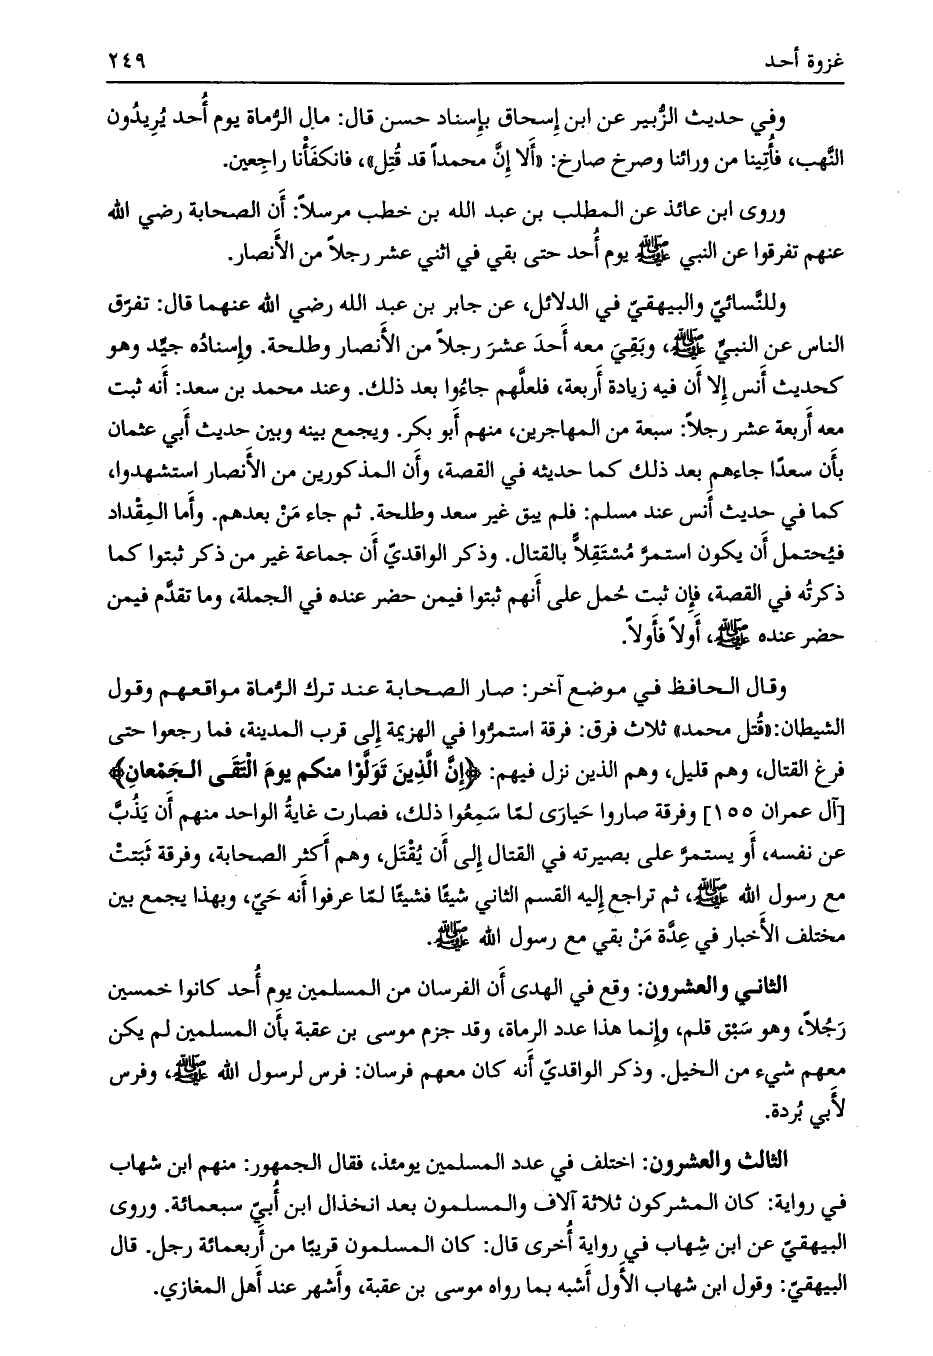 غزوة أحد ٢٤٩
وفي حديث الزُّبير عن ابن إسحاق بإسناد حسن قال: مال الرُّماة يوم أُحد يُرِيدُون
النَّهب، فأُتِينا من ورائنا وصرخ صارخ: «أَلا إِنَّ محمداً قد قُتِل»، فانكفَأْنا راجعين.
وروى ابن عائذ عن المطلب بن عبد الله بن خطب مرسلاً: أَن الصحابة رضي الله
عنهم تفرقوا عن النبي ﷺ يوم أُحد حتى بقي في اثني عشر رجلاً من الأَنصار.
وللنَّسائيّ والبيهقيّ في الدلائل، عن جابر بن عبد الله رضي الله عنهما قال: تفرّق
الناس عن النبيِّ ﷺ، وبَقِيَ معه أَحدَ عشرَ رجلاً من الأَنصار وطلحة. وإِسنادُه جيِّد وهو
كحديث أَنس إلا أَن فيه زيادة أَربعة، فلعلَّهم جاءُوا بعد ذلك. وعند محمد بن سعد: أَنه ثبت
معه أَربعة عشر رجلاً: سبعة من المهاجرين، منهم أَبو بكر. ويجمع بينه وبين حديث أَبي عثمان
بأَن سعدًا جاءهم بعد ذلك كما حديثه في القصة، وأَن المذكورين من الأَنصار استشهدوا،
كما في حديث أَنس عند مسلم: فلم يبق غير سعد وطلحة. ثم جاء مَنْ بعدهم. وأَما المِقْداد
فيُحتمل أَن يكون استمرَّ مُسْتَقِلاًّ بالقتال. وذكر الواقديّ أَن جماعة غير من ذكر ثبتوا كما
ذكرتُه في القصة، فإِن ثبت حُمل على أَنهم ثبتوا فيمن حضر عنده في الجملة، وما تقدَّم فيمن
حضر عنده ﷺ، أَولاً فأَولاً.
وقال الحافظ في موضع آخر: صار الصحابة عند ترك الرُّماة مواقعهم وقول
الشيطان:«قُتل محمد» ثلاث فرق: فرقة استمرُّوا في الهزيمة إِلى قرب المدينة، فما رجعوا حتى
فرغ القتال، وهم قليل، وهم الذين نزل فيهم: ﴿إِنَّ الَّذِينَ تَوَلَّوْا منكم يومَ الْتَقَى الجَمْعان﴾
[آل عمران ١٥٥] وفرقة صاروا حَيارَى لمّا سَمِعُوا ذلك، فصارت غايةُ الواحد منهم أَن يَذُبَّ
عن نفسه، أَو يستمرَّ على بصيرته في القتال إِلى أَن يُقْتَل، وهم أَكثر الصحابة، وفرقة ثَبَتتْ
مع رسول الله ﷺ، ثم تراجع إِليه القسم الثاني شيئًا فشيئًا لمّا عرفوا أَنه حَيّ، وبهذا يجمع بين
مختلف الأَخبار في عِدَّة مَنْ بقي مع رسول الله ﷺ.
الثاني والعشرون: وقع في الهدى أَن الفرسان من المسلمين يوم أُحد كانوا خمسين
رَجُلاً، وهو سَبْق قلم، وإِنما هذا عدد الرماة، وقد جزم موسى بن عقبة بأَن المسلمين لم يكن
معهم شيء من الخيل. وذكر الواقديّ أَنه كان معهم فرسان: فرس لرسول الله ﷺ، وفرس
لأَبي بُردة.
الثالث والعشرون: اختلف في عدد المسلمين يومئذ، فقال الجمهور: منهم ابن شهاب
في رواية: كان المشركون ثلاثة آلاف والمسلمون بعد انخذال ابن أُبيّ سبعمائة. وروى
البيهقيّ عن ابن شِهاب في رواية أُخرى قال: كان المسلمون قريبًا من أَربعمائة رجل. قال
البيهقيّ: وقول ابن شهاب الأَول أَشبه بما رواه موسى بن عقبة، وأَشهر عند أَهل المغازي.